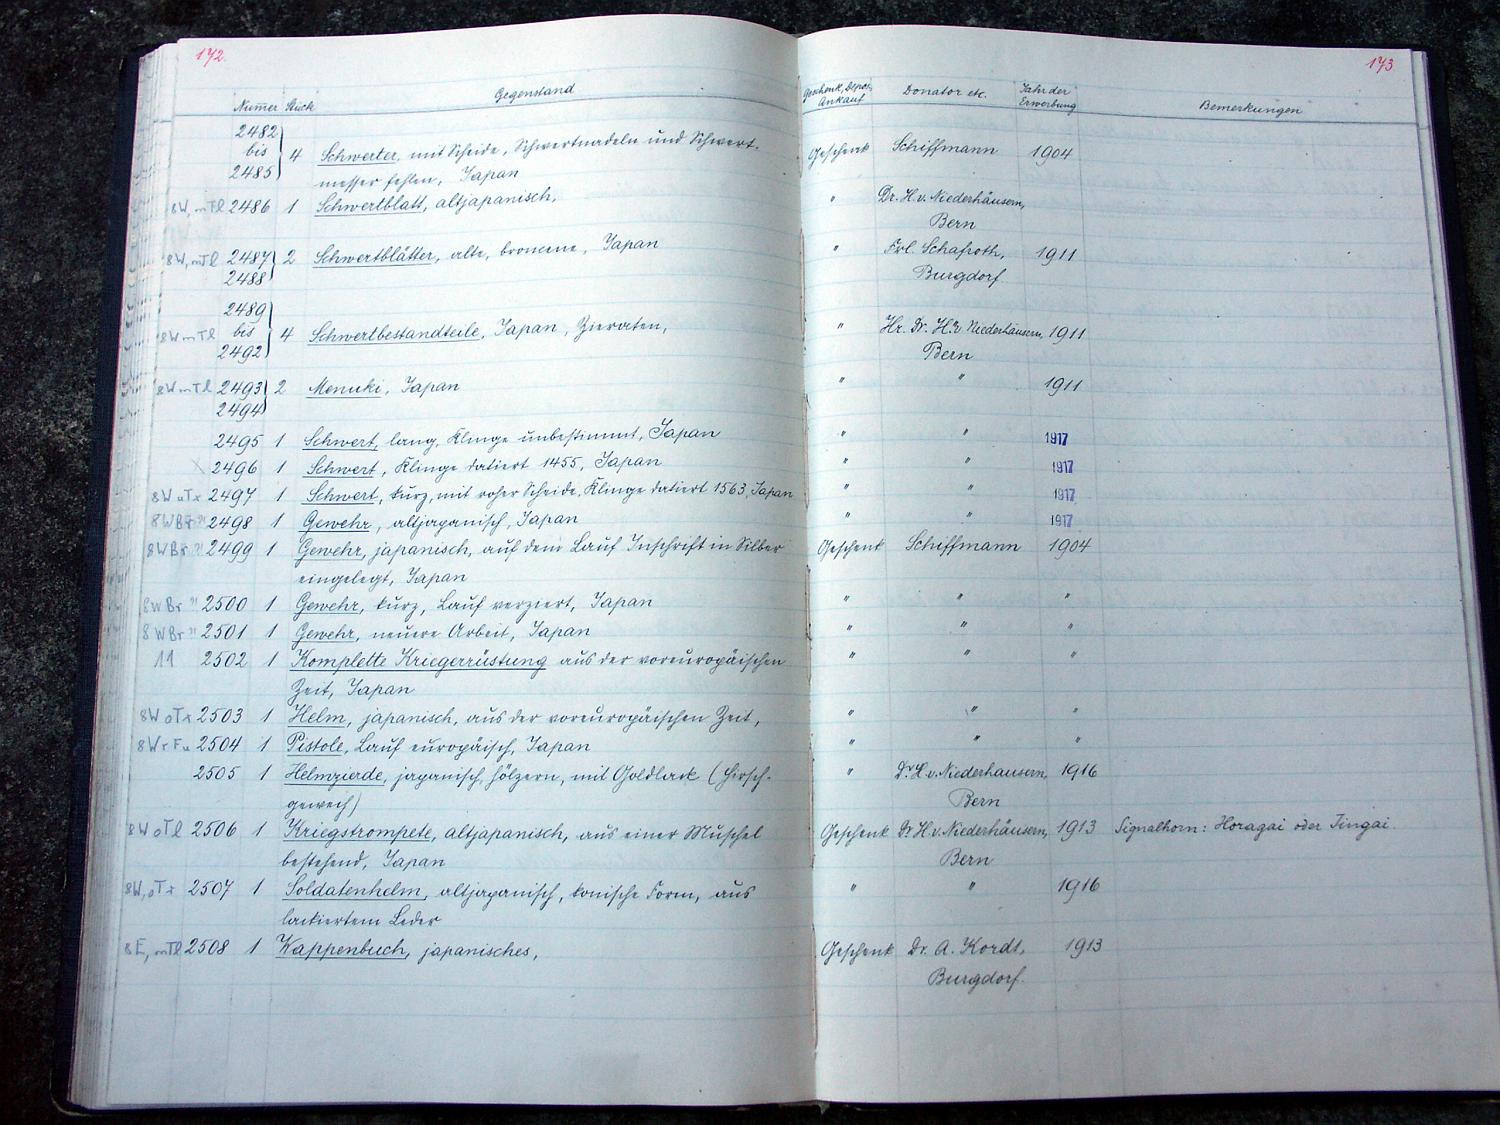 172.
173
Numer Stück Gegenstand Geschenk, Depos. Ankauf Donator etc. Jahr der Erwerbung Bemerkungen
2482
bis 4 Schwerter, mit Scheide, Schwertnadeln und Schwert- Geschenk Schiffmann 1904
2485
messer fehlen, Japan
8W, mTl 2486 1 Schwertblatt, altjapanisch, " Dr. H. v. Niederhäusern,
Bern
8W, mTl 2487 2 Schwertblätter, alte, broncene, Japan " Frl. Schafroth, 1911
2488 Burgdorf
2489
8W mTl bis 4 Schwertbestandteile, Japan, Zieraten, " Hr. Dr. H. v. Niederhäusern, 1911
2492 Bern
8W mTl 2493 2 Menuki, Japan " " 1911
2494
2495 1 Schwert, lang, Klinge unbestimmt, Japan " " 1917
2496 1 Schwert, Klinge datiert 1455, Japan " " 1917
2497 1 Schwert, kurz, mit roher Scheide, Klinge datiert 1563, Japan " " 1917
2498 1 Gewehr, altjapanisch, Japan " " 1917
8WBr 2499 1 Gewehr, japanisch, auf dem Lauf Inschrift in Silber Geschenk Schiffmann 1904
eingelegt, Japan
8WBr 2500 1 Gewehr, kurz, Lauf verziert, Japan " " "
8WBr 2501 1 Gewehr, neuere Arbeit, Japan " " "
11 2502 1 Komplette Kriegerrüstung aus der voreuropäischen " " "
Zeit, Japan
8W oTr 2503 1 Helm, japanisch, aus der voreuropäischen Zeit, " " "
8WrFu 2504 1 Pistole, Lauf europäisch, Japan " " "
2505 1 Helmzierde, japanisch, hölzern, mit Goldlack (Hirsch- " Dr. H. v. Niederhausern, 1916
geweih) Bern
8W oTl 2506 1 Kriegstrompete, altjapanisch, aus einer Muschel Geschenk Dr. H. v. Niederhäusern, 1913 Signalhorn: Horagai oder Jingai.
bestehend, Japan Bern
8W, oTr 2507 1 Soldatenhelm, altjapanisch, konische Form, aus " " 1916
lackiertem Leder
8E, mTl 2508 1 Wappenbuch, japanisches, Geschenk Dr. A. Kordt, 1913
Burgdorf.